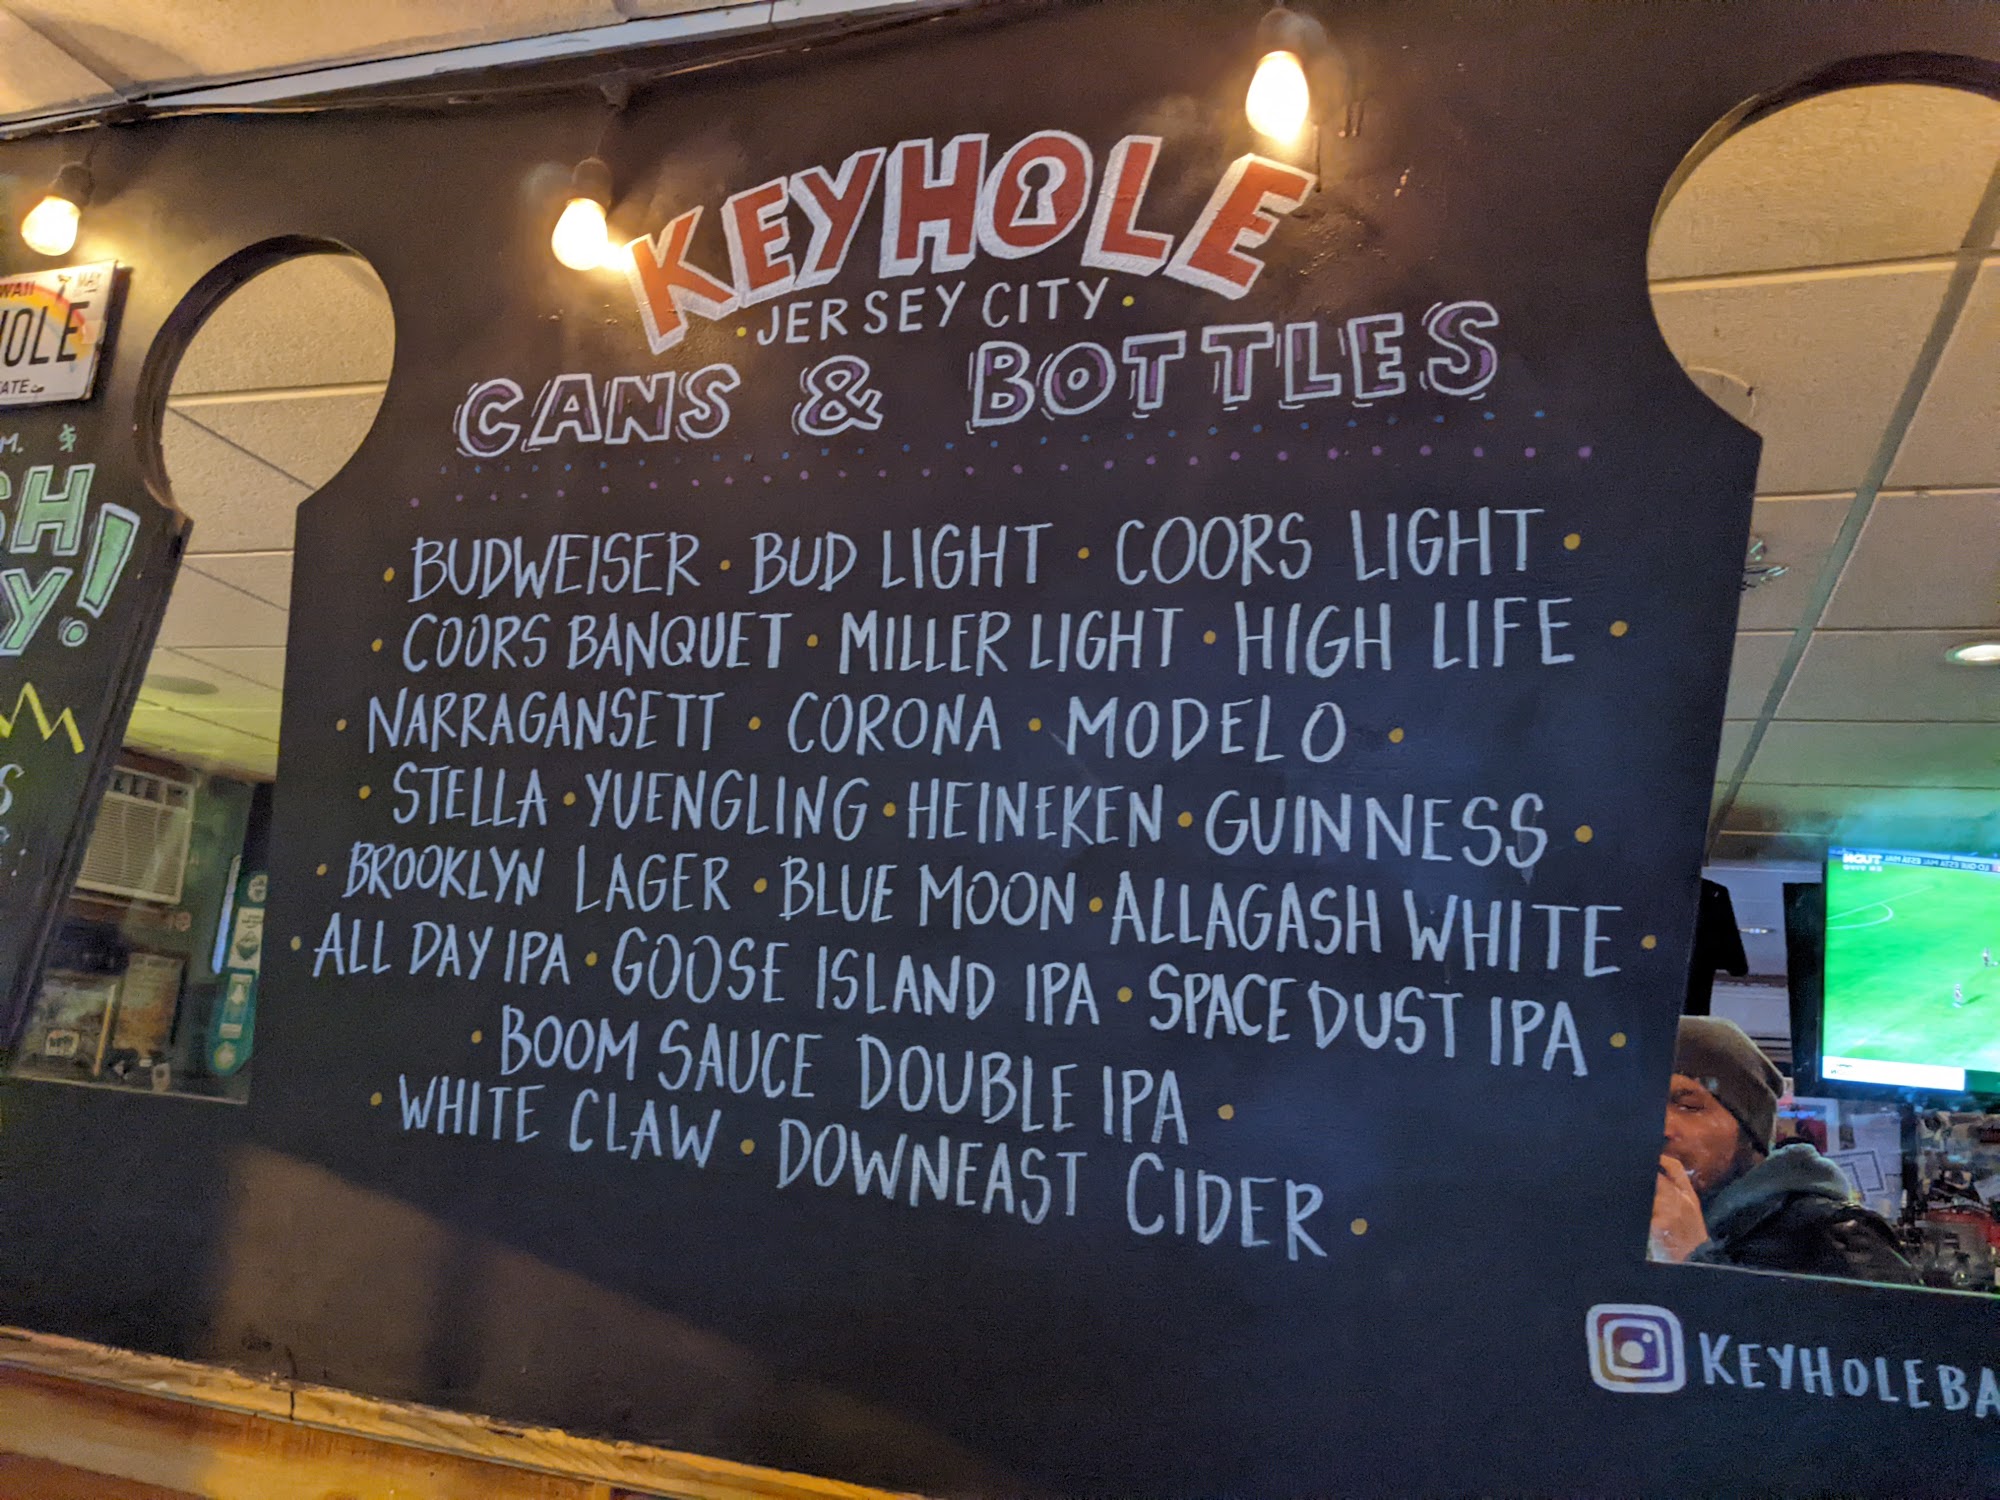 KEYHOLE
·JERSEY CITY·
CANS & BOTTLES
· BUDWEISER · BUD LIGHT · COORS LIGHT ·
· COORS BANQUET · MILLER LIGHT · HIGH LIFE ·
· NARRAGANSETT · CORONA · MODELO ·
· STELLA · YUENGLING · HEINEKEN · GUINNESS ·
· BROOKLYN LAGER · BLUE MOON · ALLAGASH WHITE ·
· ALL DAY IPA · GOOSE ISLAND IPA · SPACE DUST IPA ·
· BOOM SAUCE DOUBLE IPA ·
· WHITE CLAW · DOWNEAST CIDER ·
KEYHOLEBA
MAY
OLE